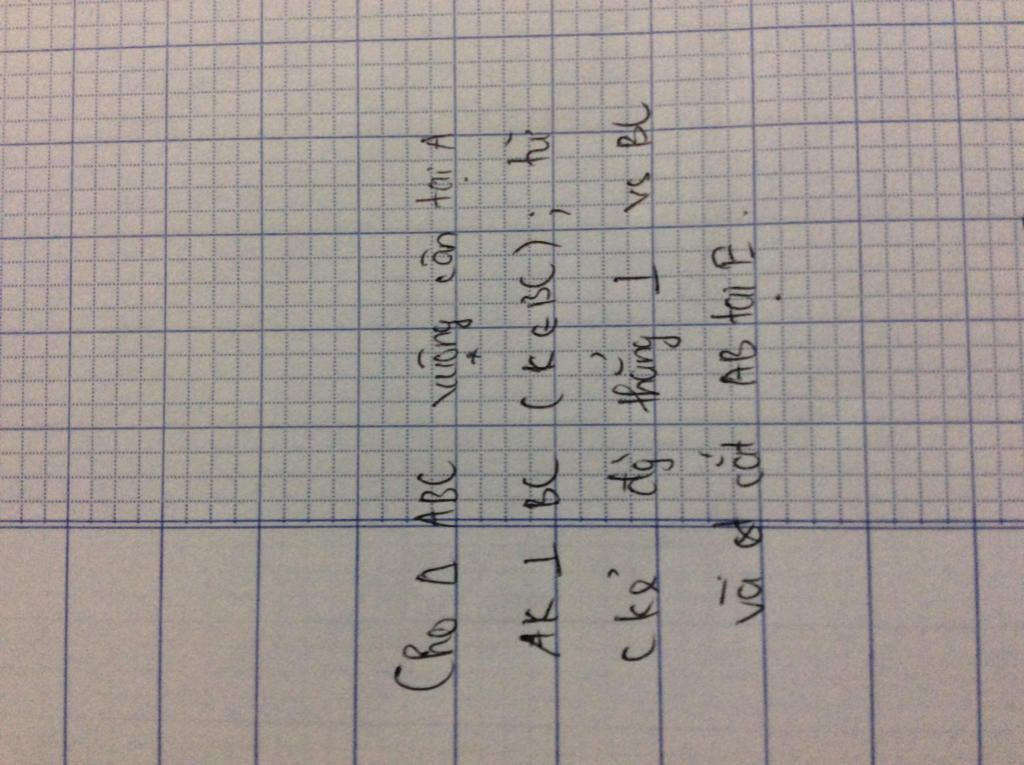 Cho Δ ABC vuông cân tại A
AK ⊥ BC (K ∈ BC); từ
C kẻ đg thẳng ⊥ vs BC
và cắt AB tại E.